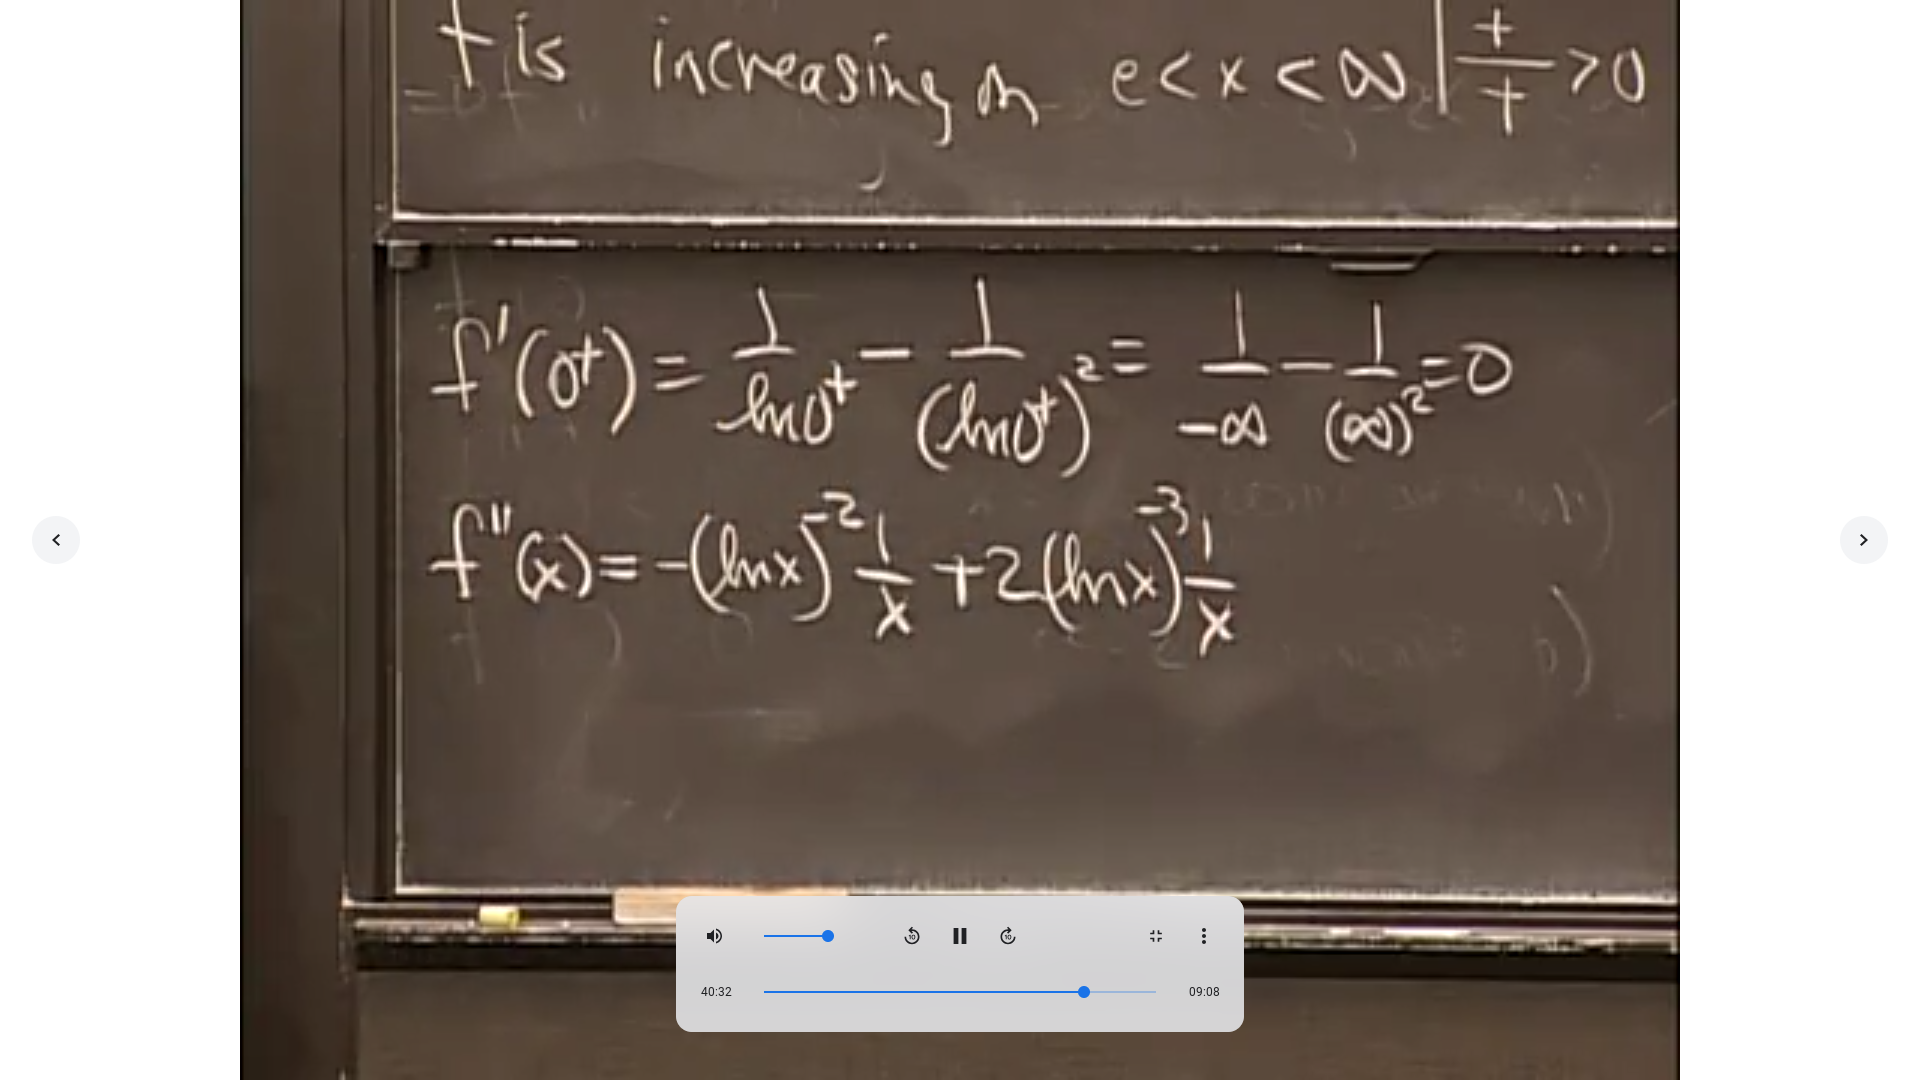 f is increasing on e < x < ∞ | + / + > 0
f'(0⁺) = 1/ln0⁺ − 1/(ln0⁺)² = 1/−∞ − 1/(∞)² = 0
f''(x) = −(lnx)⁻² 1/x + 2(lnx)⁻³ 1/x
10
10
40:32
09:08